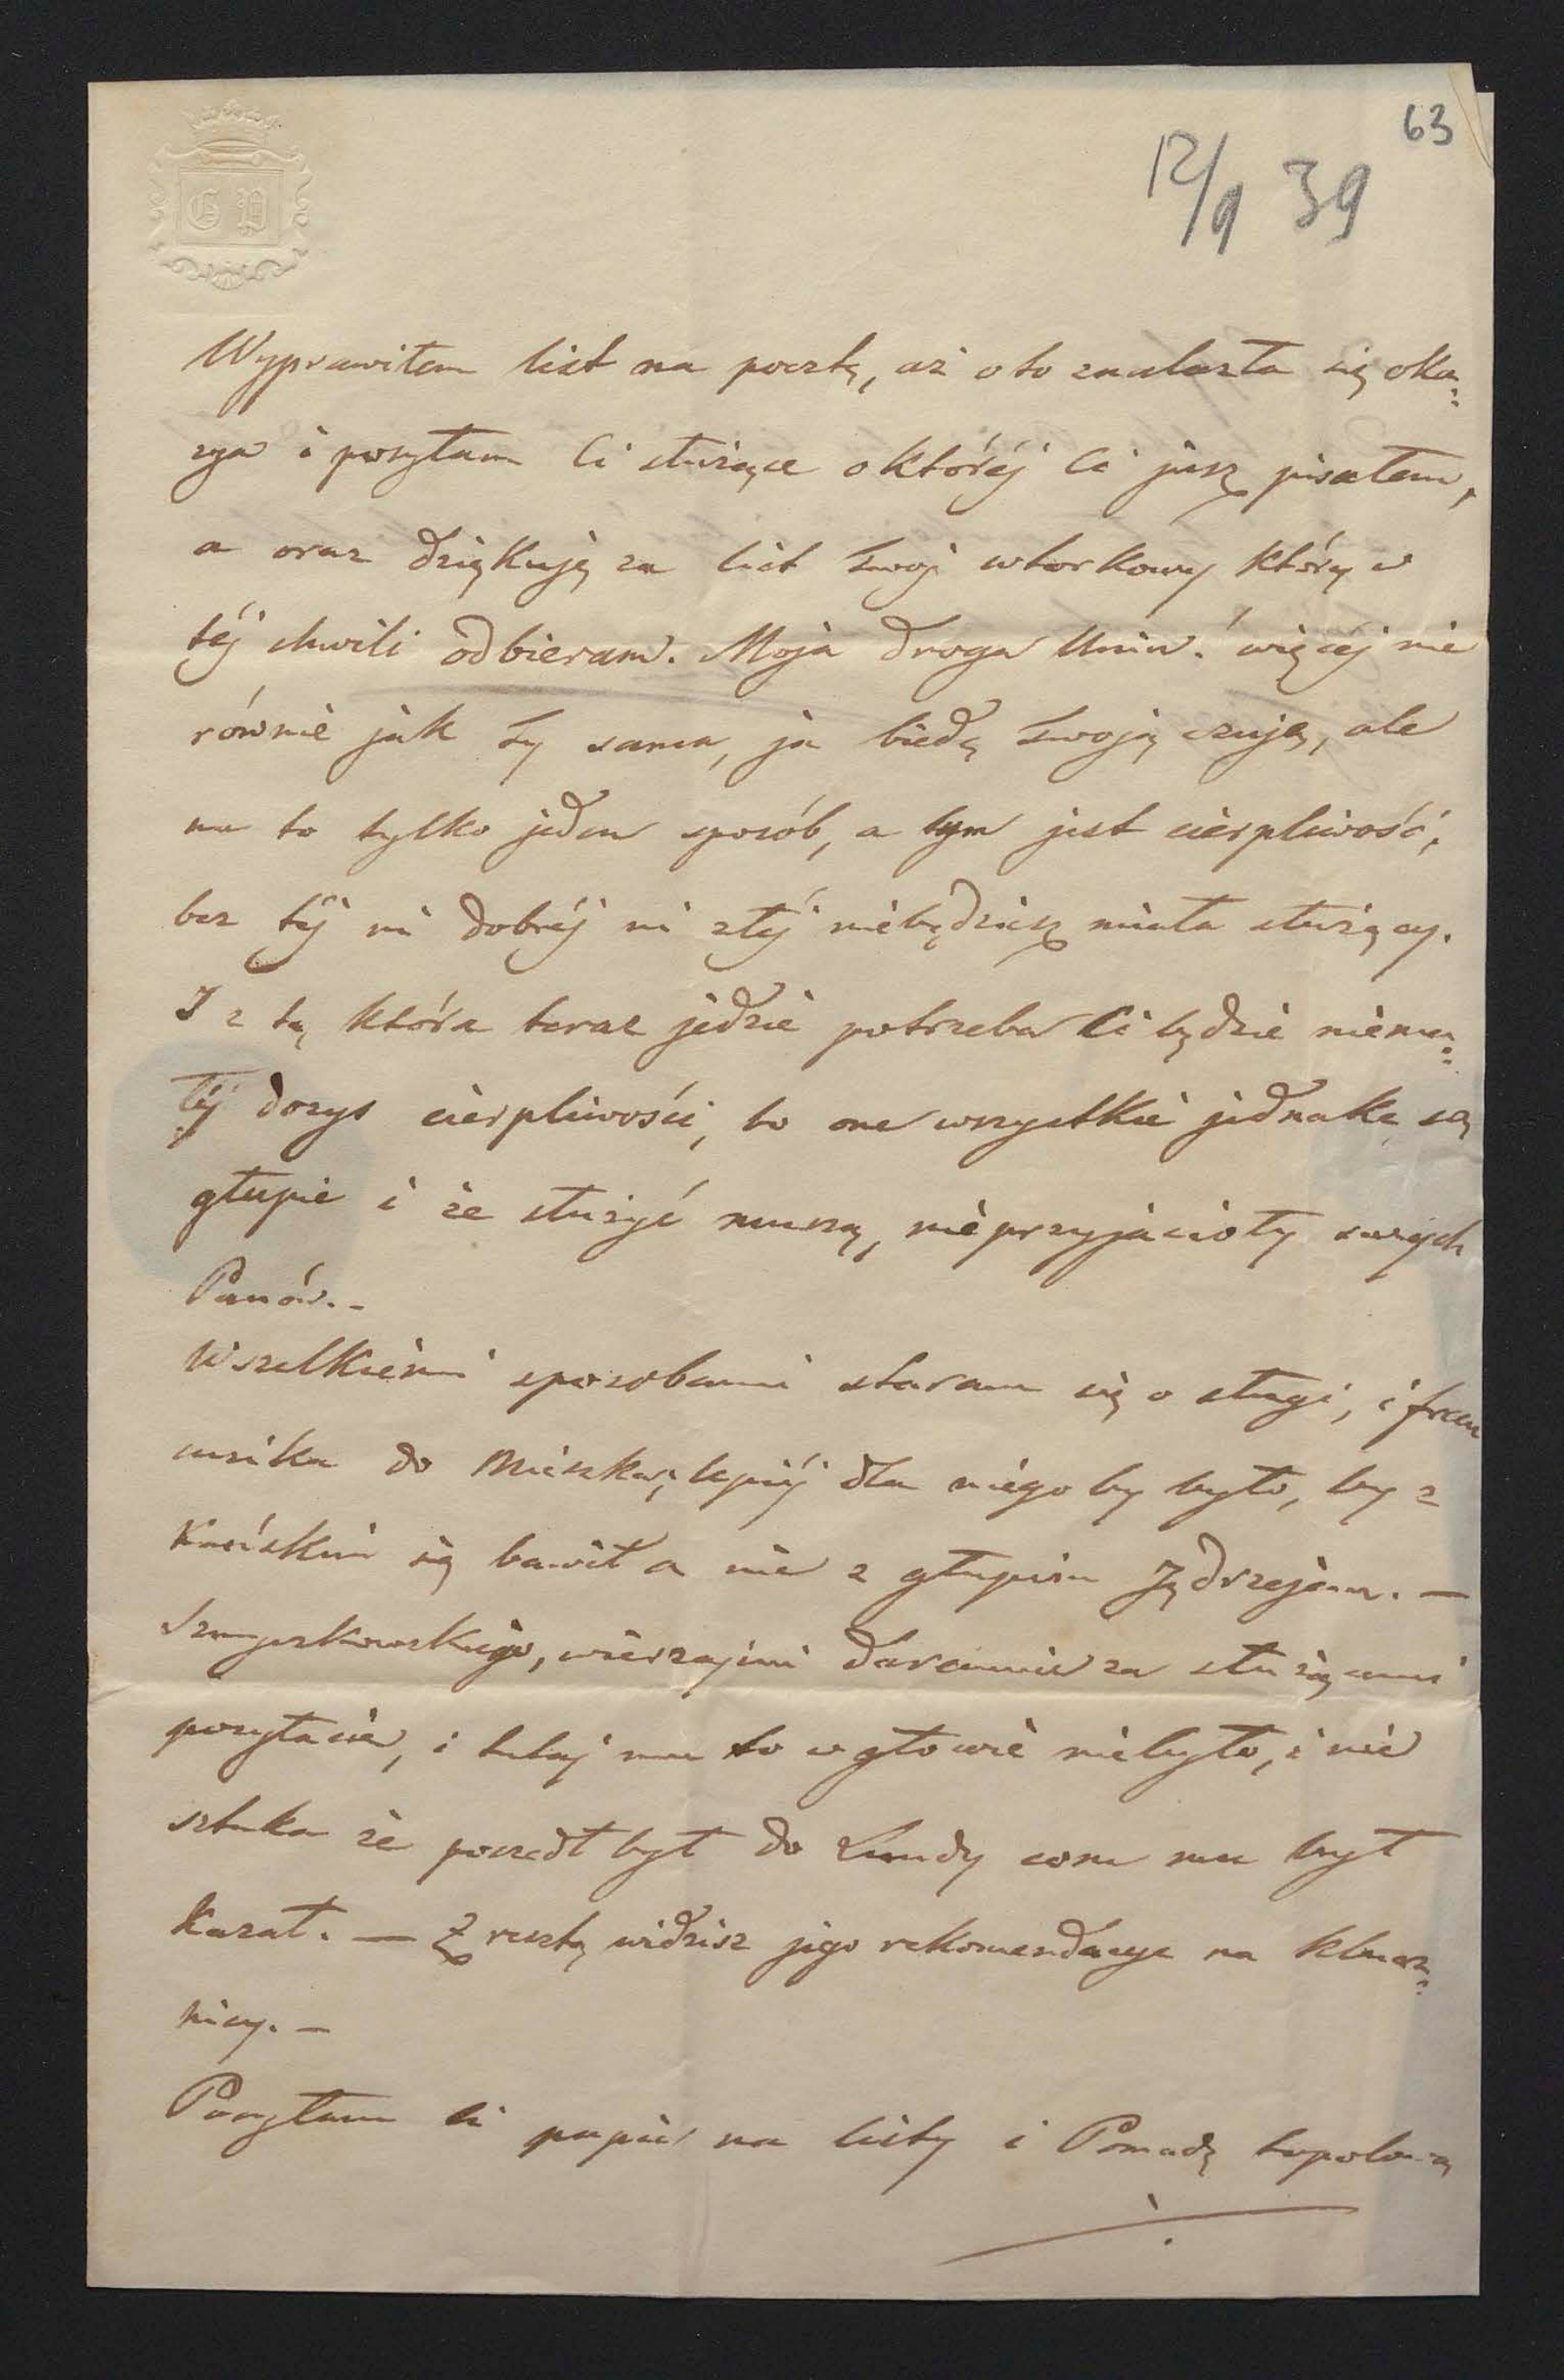 63
12/9 39
G P
Wyprawiłem list na pocztę, aż oto znalazła się oka:
zya i posyłam Ci służące o któréj Ci jusz pisałem,
a oraz dziękuję za list twoj wtorkowy który w
téj chwili odbieram. Moja droga Uniu! więcéj nie
równie jak ty sama, ja biedę twoją czuję, ale
na to tylko jeden sposób, a tym jest cierpliwość,
bez téj ni dobréj ni złéj niebędziesz miała służący.
I z tą która teraz jedzie potrzeba Ci będzie niema:
łéj dozys cierpliwości, bo one wszystkie jednake są
głupie i że służyć muszą, nieprzyjacioły swych
Panów.-
Wszelkiemi sposobami staram się o sługi, i fran
cuzika do Mieszka; lepiéj dla niégo by było, by z
się bawił a nie z głupim Jędrzejem. —
wierzaj mi daremnie za służącemi
posyłacie, i tutaj mu to w głowie niebyło, i nie
sztuka że poszedł był do com mu był
kazał. — Z resztą widzisz jego rekomendacye na klucz:
nicy. —
Posyłam Ci papier na listy i Pomadę topolową